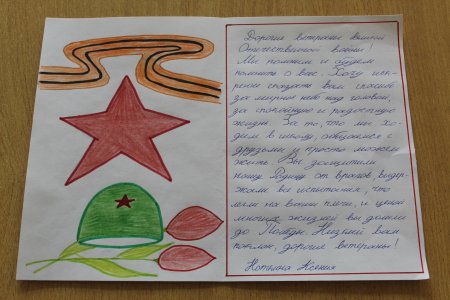 Дорогие ветераны великой
Отечественной войны!
Мы помним и будем
помнить о вас. Хочу иск-
ренне сказать Вам спасибо
за мирное небо над головой,
за спокойную и радостную
жизнь. За то, что мы хо-
дим в школу, общаемся с
друзьями и просто можем
жить. Вы защитили
нашу Родину от врагов, выдер-
жали все испытания, что
легли на ваши плечи, и ценой
многих жизней вы дошли
до Победы. Низкий вам
поклон, дорогие ветераны!
Ксения